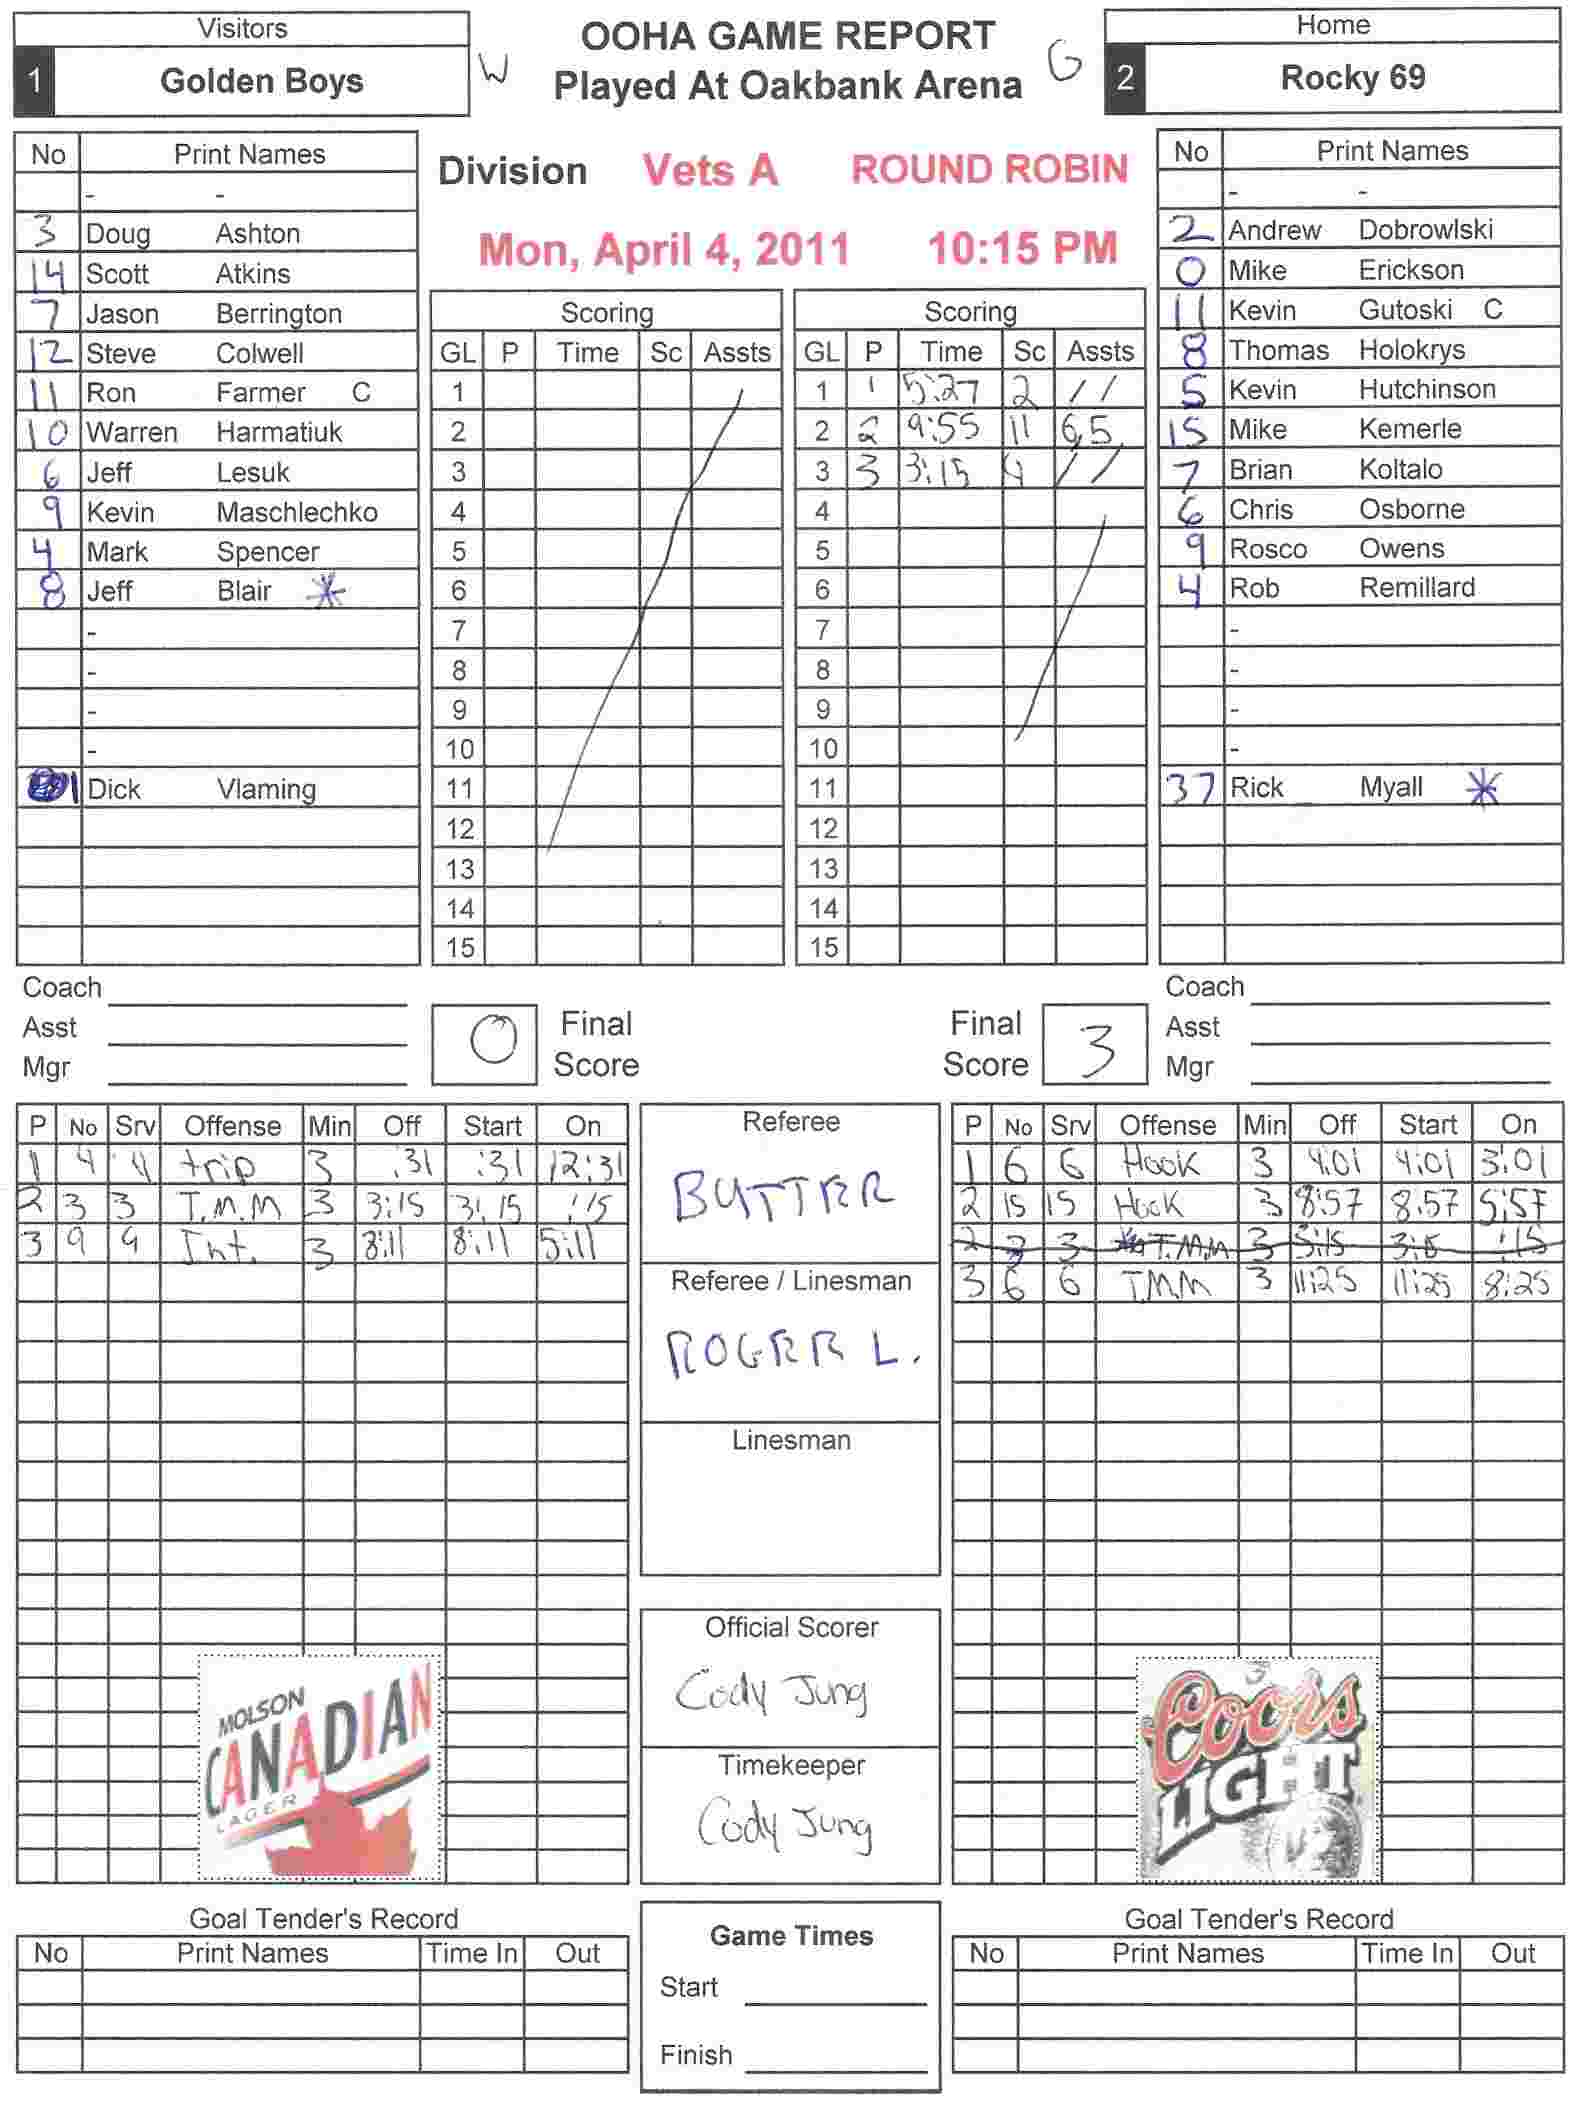 Visitors
1 Golden Boys
W
OOHA GAME REPORT
Played At Oakbank Arena
G
Home
2 Rocky 69
Division Vets A ROUND ROBIN
Mon, April 4, 2011 10:15 PM
No Print Names
- -
3 Doug Ashton
14 Scott Atkins
7 Jason Berrington
12 Steve Colwell
11 Ron Farmer C
10 Warren Harmatiuk
6 Jeff Lesuk
9 Kevin Maschlechko
4 Mark Spencer
8 Jeff Blair *
-
-
-
-
1 Dick Vlaming
Scoring
GL P Time Sc Assts
1
2
3
4
5
6
7
8
9
10
11
12
13
14
15
Scoring
GL P Time Sc Assts
1 1 5:27 2 / /
2 2 9:55 11 6,5
3 3 3:15 4 / /
4
5
6
7
8
9
10
11
12
13
14
15
No Print Names
- -
2 Andrew Dobrowlski
0 Mike Erickson
11 Kevin Gutoski C
8 Thomas Holokrys
5 Kevin Hutchinson
15 Mike Kemerle
7 Brian Koltalo
6 Chris Osborne
9 Rosco Owens
4 Rob Remillard
-
-
-
-
37 Rick Myall *
Coach
Asst
Mgr
0 Final Score
Final Score 3
Coach
Asst
Mgr
P No Srv Offense Min Off Start On
1 4 4 trip 3 :31 :31 12:31
2 3 3 T.M.M 3 3:15 3:15 :15
3 9 9 Int. 3 8:11 8:11 5:11
MOLSON
CANADIAN
LAGER
Referee
BUTTER
Referee / Linesman
ROGER L.
Linesman
Official Scorer
Cody Jung
Timekeeper
Cody Jung
P No Srv Offense Min Off Start On
1 6 6 Hook 3 4:01 4:01 3:01
2 15 15 Hook 3 8:57 8:57 5:57
2 3 3 T.M.M 3 3:15 3:15 :15
3 6 6 T.M.M 3 11:25 11:25 8:25
3
Coors
LIGHT
Goal Tender's Record
No Print Names Time In Out
Game Times
Start
Finish
Goal Tender's Record
No Print Names Time In Out